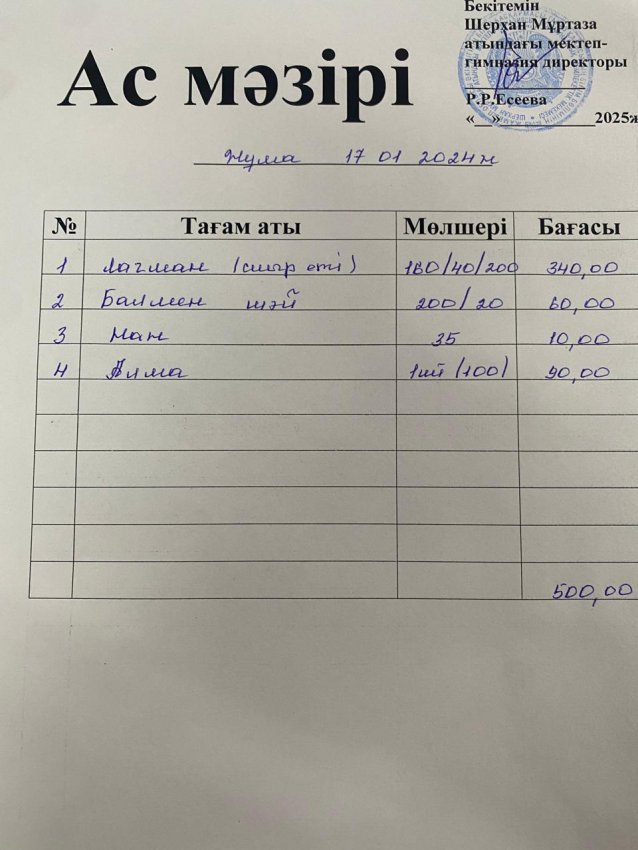 Бекітемін
Шерхан Мұртаза
атындағы мектеп-
гимназия директоры
Р.Р.Есеева
«__»____________2025ж
Ас мәзірі
Жұма 17 01 2024ж
№ Тағам аты Мөлшері Бағасы
1 Лагман (сиыр еті) 160/40/200 340,00
2 Балмен шәй 200/20 60,00
3 Нан 35 10,00
4 Алма 1шт/100/ 90,00
500,00